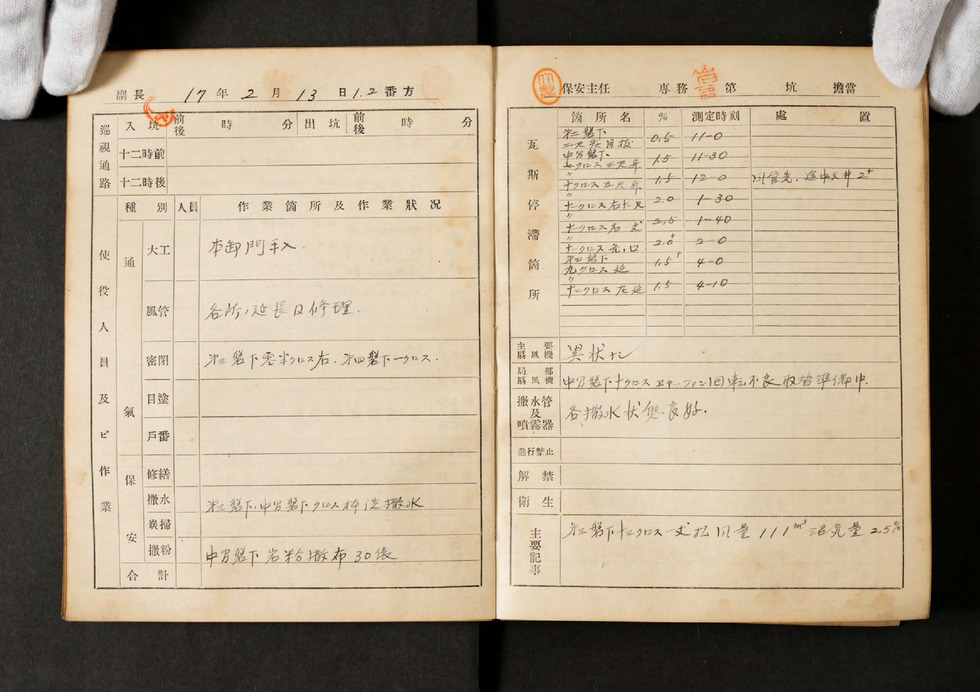 副長 17年2月13日1.2番方
巡視通路
入坑 前後 時 分 出坑 前後 時 分
十二時前
十二時後
使役人員及ビ作業
種別 人員 作業箇所及作業狀況
通氣
大工 本卸門手入
風管 各所ノ延長及修理.
密閉 第三盤下零半クロス右.第四盤下一クロス.
目塗
戶番
保安
修繕
撒水 第三盤下.中部盤下クロス 撒水
炭掃
撒粉 中部盤下岩粉撒布30俵
合計
保安主任 専務 第 坑 擔當
瓦斯停滯箇所
箇所名 % 測定時刻 處置
第二盤下
0.5 11-0
中部盤下
七クロス三尺昇 1.5 11-30
〃
十クロス五尺昇 1.5 12-0
〃
十一クロス右 2.0 1-30
〃
十一クロス右 2.5 1-40
〃
十一クロス 2.0+ 2-0
第四盤下
九クロス延 1.5+ 4-0
〃
十一クロス左延 1.5 4-10
主要扇風機 異状ナシ
局部扇風機 中部盤下十クロスエヤーファン回転不良取替準備中.
撒水管及噴霧器 各撒水状態良好.
進行禁止
解禁
衛生
主要記事 第三盤下十二クロス 風量111m³ 沼気量2.5%